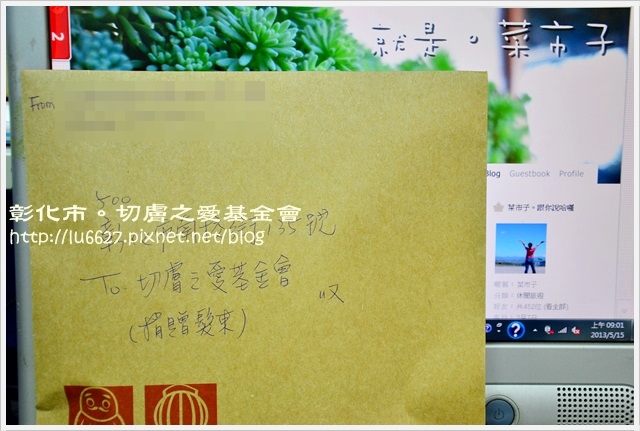 就是。菜市子
2
From
Blog Guestbook Profile
500
彰化市。切膚之愛基金會
135號
http://lu6627.pixnet.net/blog
菜市子。跟你說哈囉
To 切膚之愛基金會
收
(捐贈髮束)
暱稱：菜市子
上午 09:01
2013/5/15